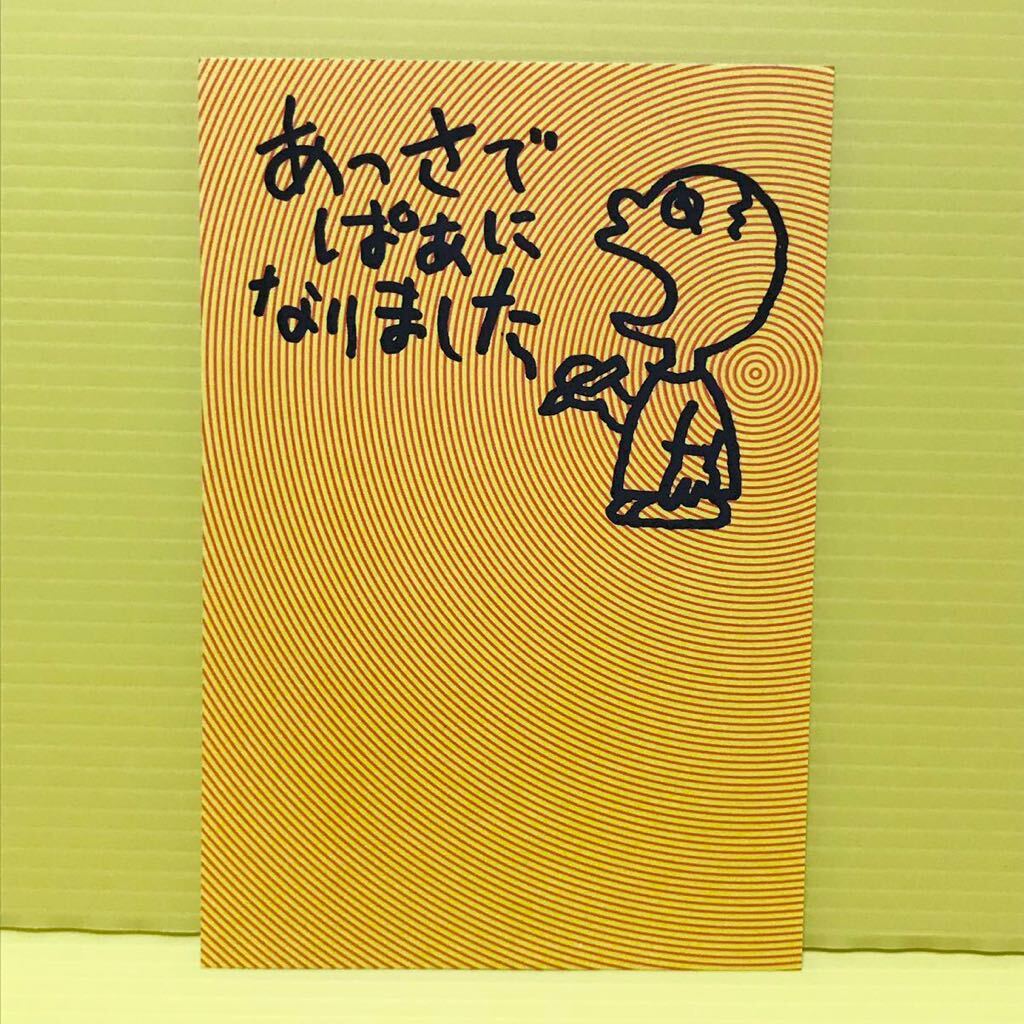 あっさで
ぱぁに
なりました